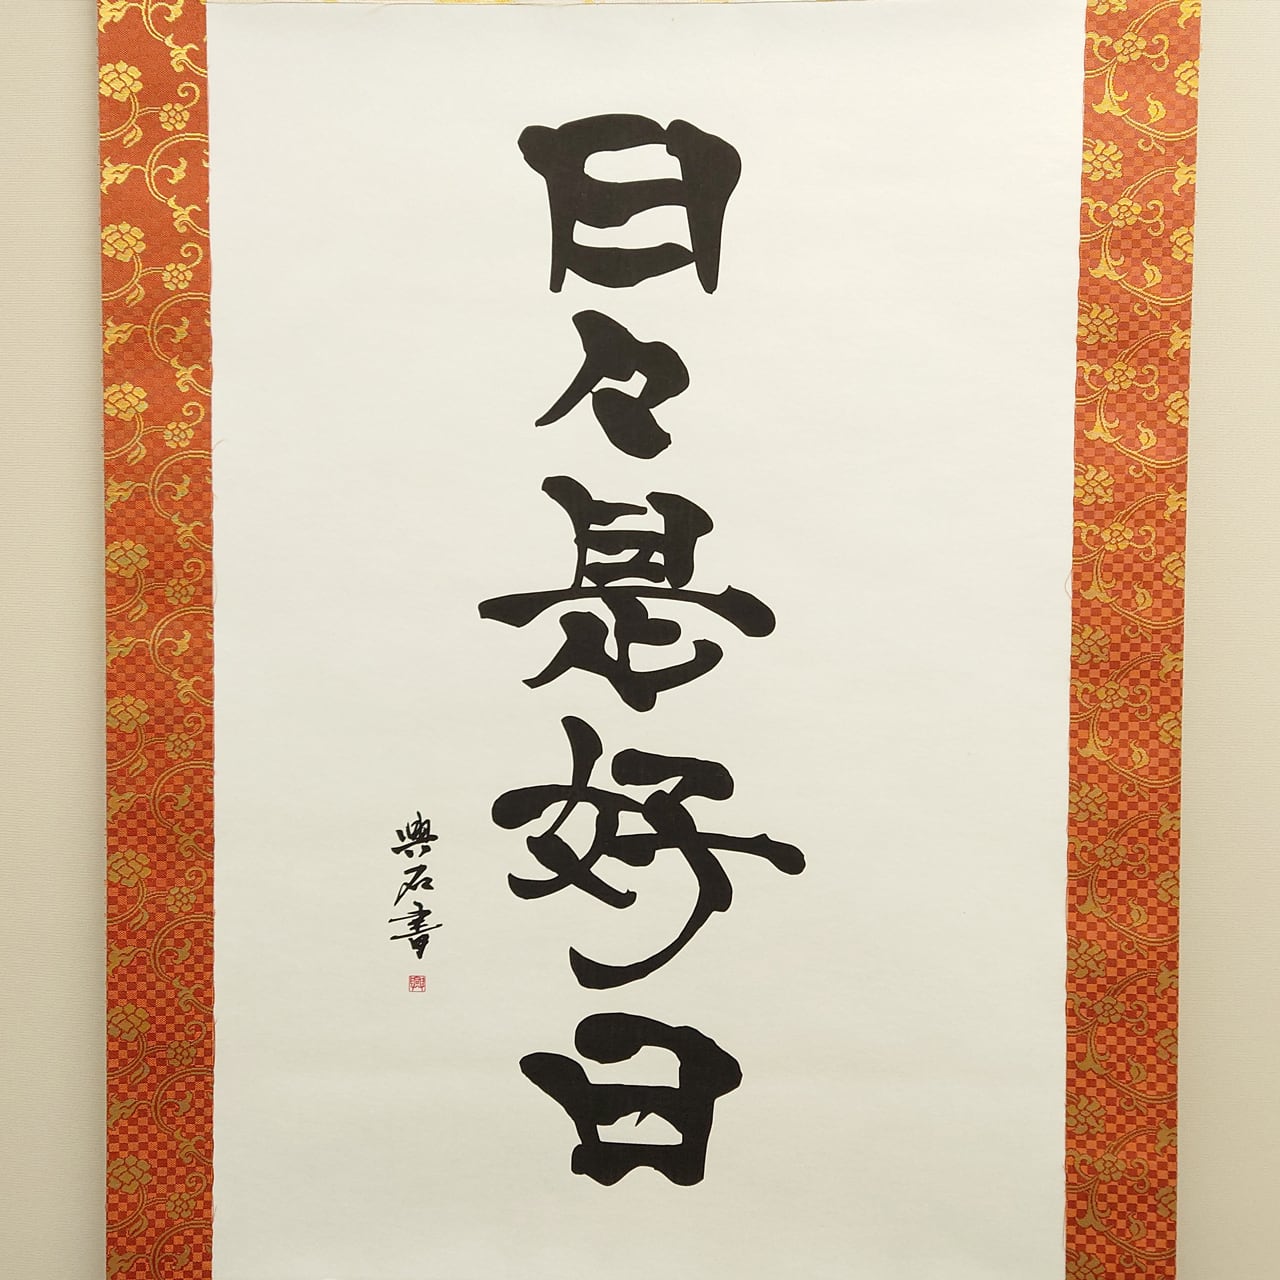 日々是好日
興石書